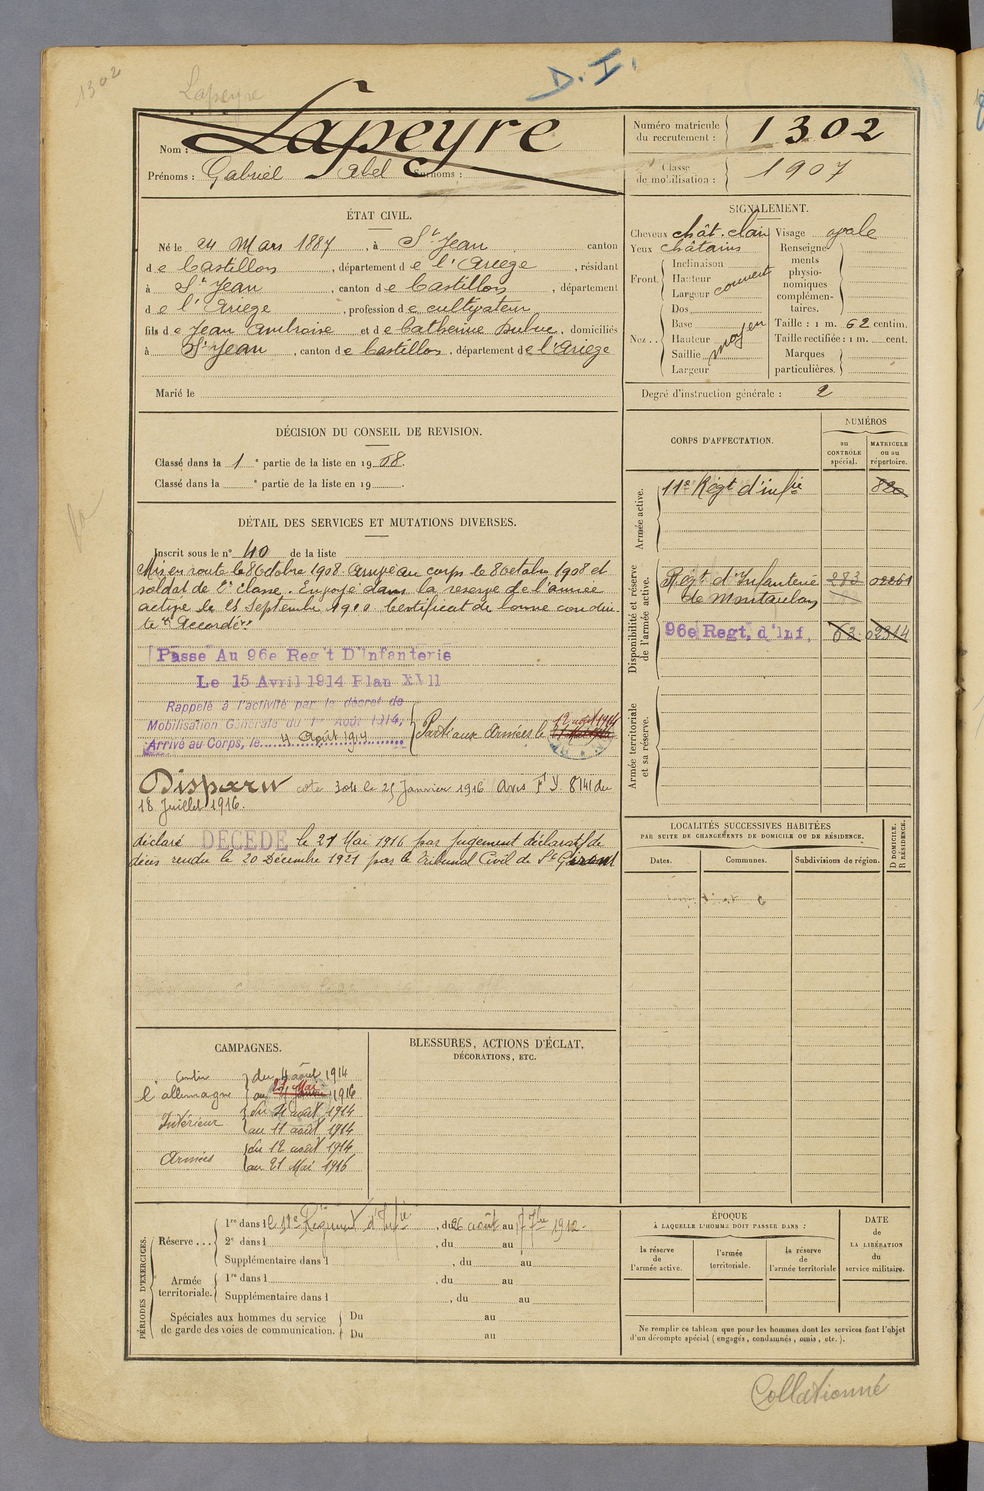 1302
Lapeyre
D. I.
Nom : Lapeyre
Prénoms : Gabriel Abel Surnoms :
Numéro matricule du recrutement : 1302
Classe de mobilisation : 1907
ÉTAT CIVIL.
Né le 24 Mars 1887, à St Jean canton
de Castillon, département de l'Ariège, résidant
à St Jean, canton de Castillon, département
de l'Ariège, profession de cultivateur
fils de Jean Ambroise et de Catherine Dubuc, domiciliés
à St Jean, canton de Castillon, département de l'Ariège
Marié le
SIGNALEMENT.
Cheveux chât. clair Visage ovale
Yeux châtains
Front. Inclinaison
Hauteur
Largeur couvert
Nez.. Dos
Base
Hauteur moyen
Saillie
Largeur
Renseignements physionomiques complémentaires.
Taille : 1 m. 62 centim.
Taille rectifiée : 1 m. cent.
Marques particulières.
Degré d'instruction générale : 2
DÉCISION DU CONSEIL DE REVISION.
Classé dans la 1e partie de la liste en 1908.
Classé dans la e partie de la liste en 19
CORPS D'AFFECTATION.
NUMÉROS
au CONTRÔLE spécial.
MATRICULE ou au répertoire.
Armée active.
11e Régt d'infie 820
Disponibilité et réserve de l'armée active.
Régt d'Infanterie 283 02261
de Montauban
96e Regt, d'Inf, 62 02314
Armée territoriale et sa réserve.
DÉTAIL DES SERVICES ET MUTATIONS DIVERSES.
Inscrit sous le n° 40 de la liste
Mis en route le 8 Octobre 1908. Arrivé au corps le 8 octobre 1908 et
soldat de 2e classe. Envoyé dans la réserve de l'armée
active le 25 Septembre 1910. Certificat de bonne condui-
te "Accordé"
Passé Au 96e Reg't D'Infanterie
Le 15 Avril 1914 Plan XVII
Rappelé à l'activité par le décret de
Mobilisation Générale du 1er Août 1914,
Arrivé au Corps, le 4 Août 1914
Parti aux Armées le 12 août 1914
Disparu cote 304 le 25 Janvier 1916 Avis F Y 8141 du
18 Juillet 1916.
déclaré DECEDE le 21 Mai 1916 par jugement déclaratif de
décès rendu le 20 Décembre 1921 par le Tribunal Civil de St Girons
LOCALITÉS SUCCESSIVES HABITÉES
PAR SUITE DE CHANGEMENTS DE DOMICILE OU DE RÉSIDENCE.
Dates. Communes. Subdivisions de région.
D DOMICILE. R RÉSIDENCE.
CAMPAGNES.
Contre l'allemagne du 4 août 1914
au 21 Mai 1916
Intérieur du 4 août 1914
au 11 août 1914
Armées du 12 août 1914
au 21 Mai 1916
BLESSURES, ACTIONS D'ÉCLAT,
DÉCORATIONS, ETC.
PÉRIODES D'EXERCICES.
Réserve...
1re dans le 11e Régiment d'Infie, du 26 août au 7 7bre 1912.
2e dans l, du au
Supplémentaire dans l, du au
Armée territoriale.
1re dans l, du au
Supplémentaire dans l, du au
Spéciales aux hommes du service
de garde des voies de communication.
Du au
Du au
ÉPOQUE
À LAQUELLE L'HOMME DOIT PASSER DANS :
la réserve de l'armée active.
l'armée territoriale.
la réserve de l'armée territoriale
DATE
de
LA LIBÉRATION
du
service militaire.
Ne remplir ce tableau que pour les hommes dont les services font l'objet
d'un décompte spécial (engagés, condamnés, omis, etc.).
Collationné